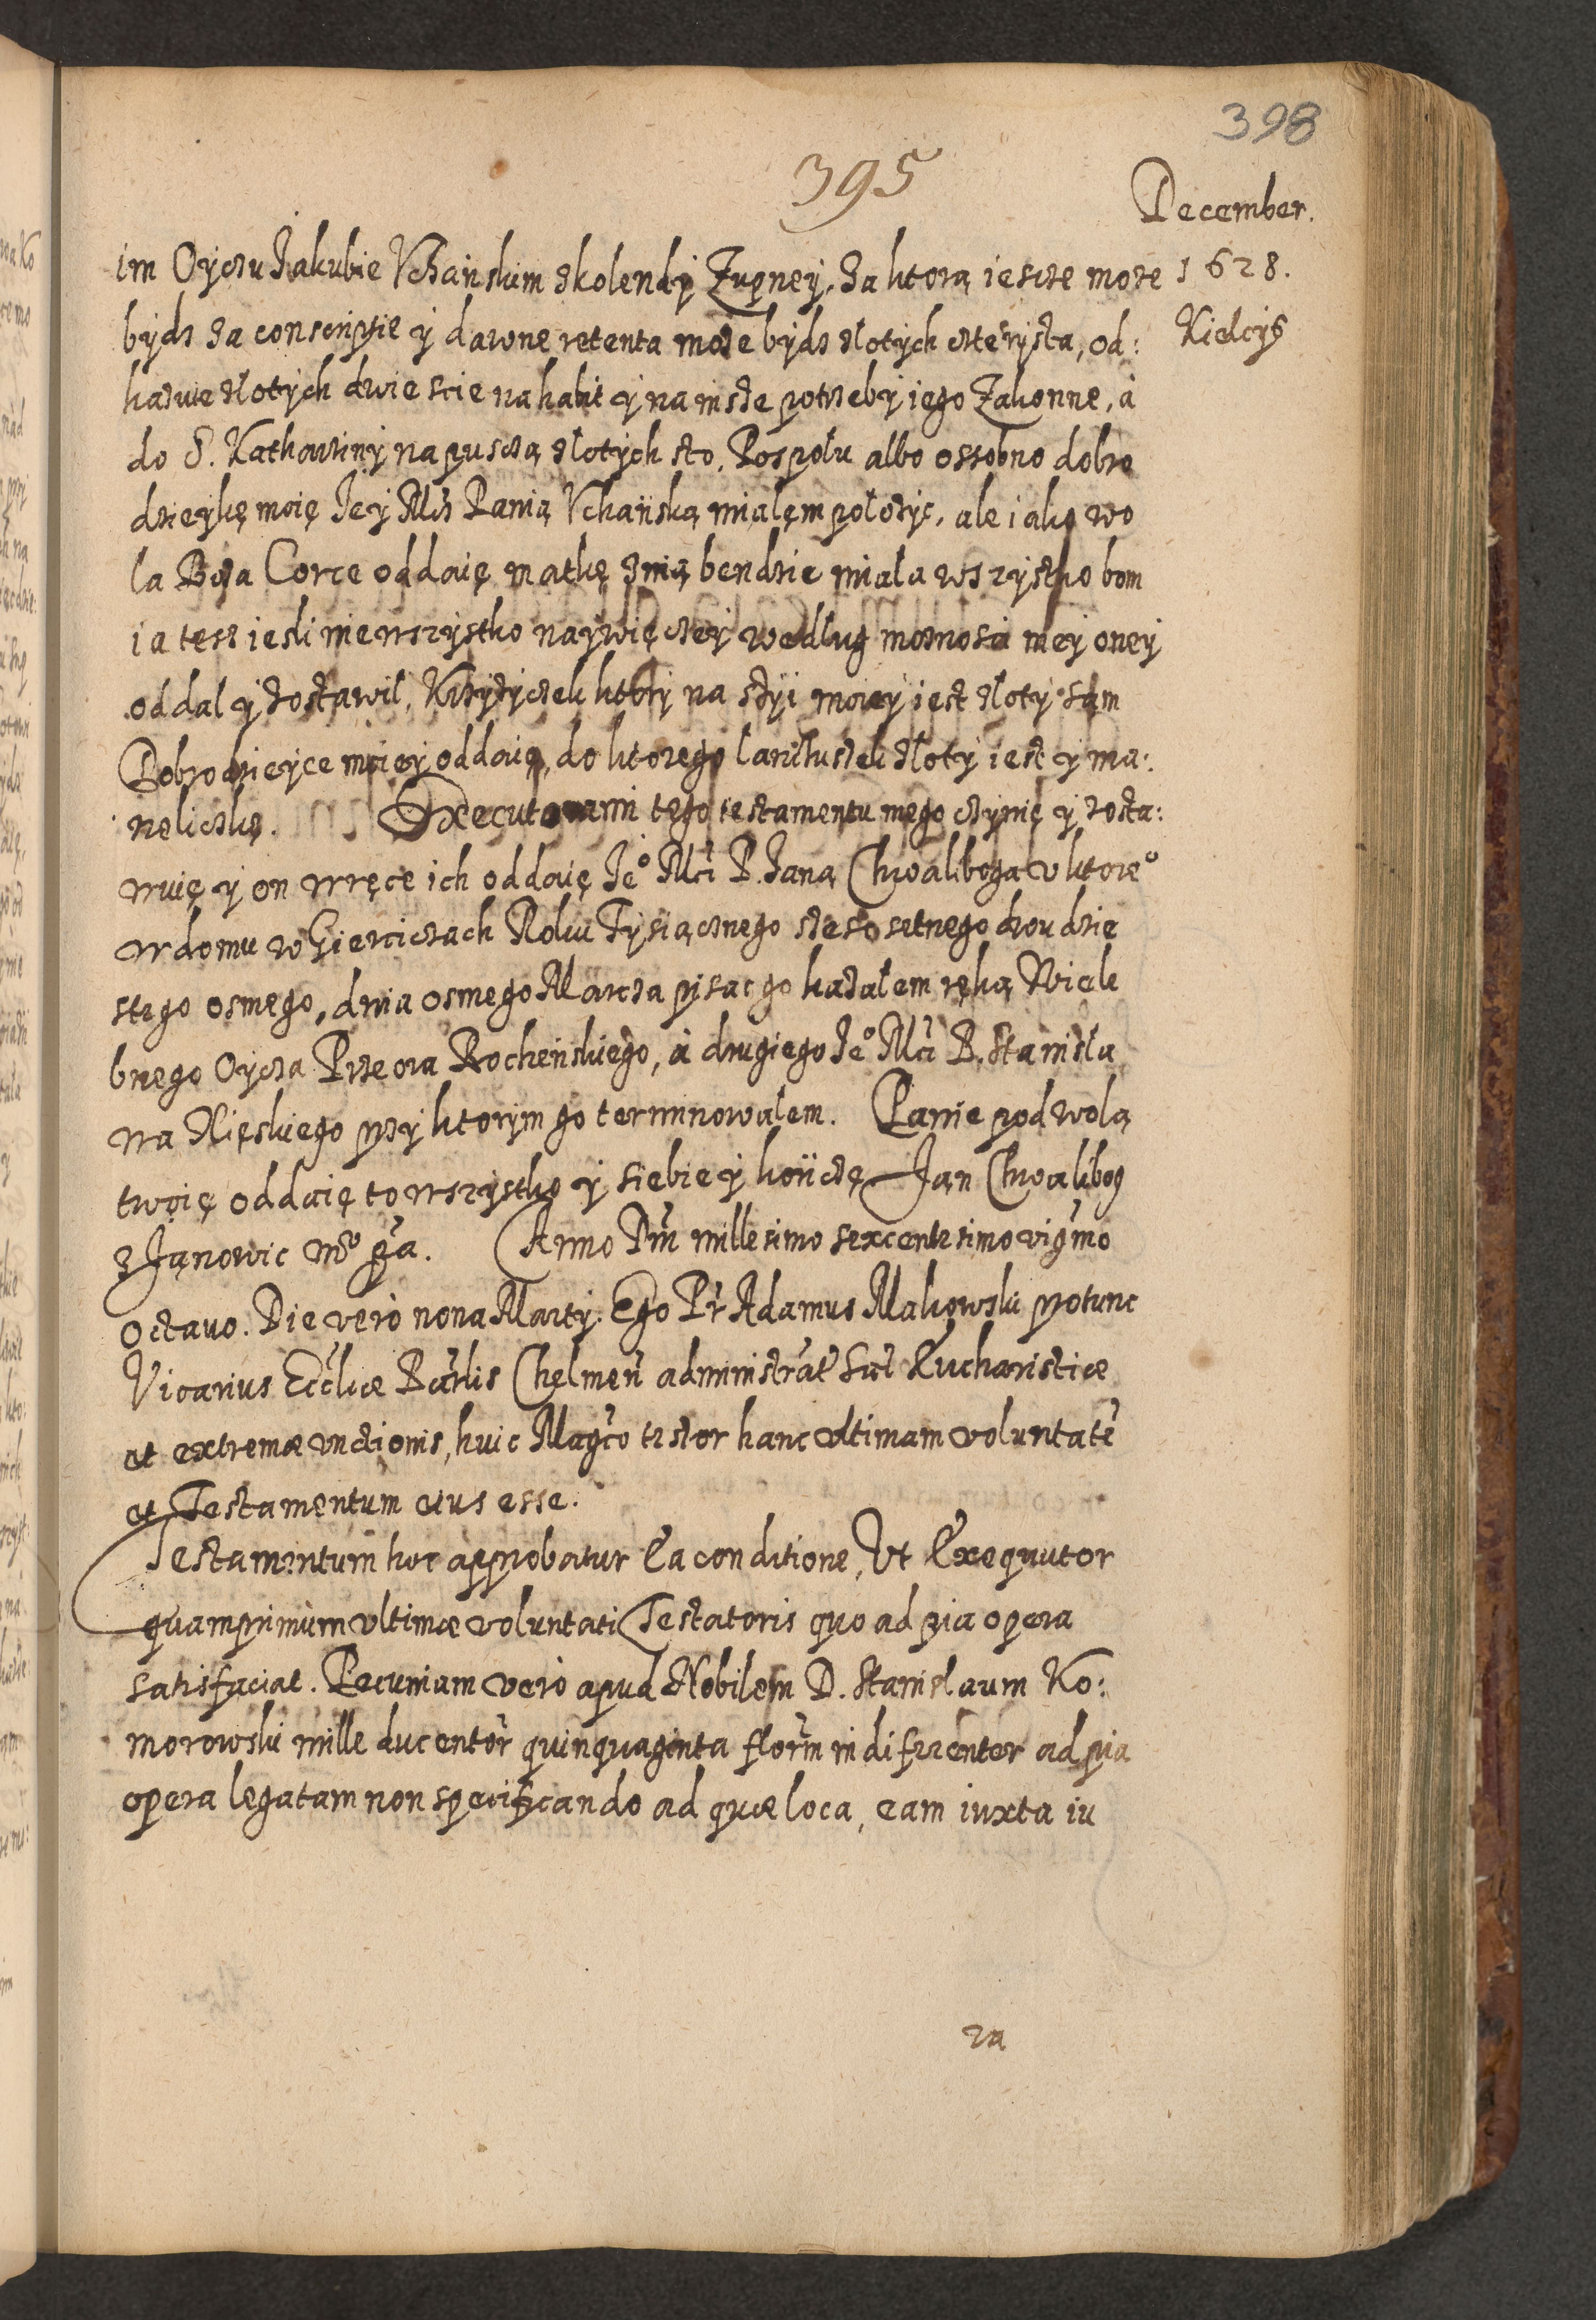 398
395
December.
1628.
Kielcys
im Oyczu Jakubie Vchańskim z kolendy Zupney, za ktorą iescze może
bydz za conscriptie y dawne retenta może bydz złotych czterysta, od:
każuie złotych dwiescie na habit y na insze potrzeby iego Zakonne, á
do S. Katharziny na pusczą złotych sto. Pospołu albo ossobno dobro
dzieykę moię Jey Mć Panią Vchańską miałęm położyc, ale iako wo
la Boża Corce oddaię matkę z nią bendzie miała wszystko bom
ia tesz iesli nie wszystko naywięczey według możnosci mey oney
oddal y zostawil. Krzyżyczek ktory na szyi moiey iest złoty sam
Dobrodzieyce moiey oddaię, do ktorego łancłuszek złoty iest y ma:
neliczkę. Executorami tego testamentu mego czynię y zosta:
wuię y on wręce ich oddaię Je° Mci P. Jana Chwaliboga v ktore°
w domu w Gierciczach Roku Tysiącznego szesosetnego dwudzie
stego osmego, dnia osmego Marcza pisac go kazałem ręką Wiele
bnego Oycza Przeora Bocheńskiego, á drugiego Je° Mci P. Stanisła
wa Kięskiego przy ktorym go terminowalem. Panie pod wolą
twoię oddaię to wszystko y siebie y kończę Jan Chwalibog
z Janowic mp ręa. Anno Dni millesimo sexcentesimo vigmo
octauo. Die vero nona Marty. Ego Pr Adamus Makowski protunc
Vicarius Ecclicæ Parlis Chelmen administrat Sac Eucharistiæ
et extremæ vnctionis, huic Magco testor hanc vltimam voluntatē
et Testamentum eius esse.
Testamentum hoc approbatur Ea conditione, Vt Exequutor
quamprimùm vltimæ voluntati Testatoris quo ad pia opera
satisfaciat. Pecuniam verò apud Nobilem D. Stanislaum Ko:
morowski mille ducentor quinquaginta florm indifrenter ad pia
opera legatam non specificando ad quæ loca, eam iuxta iu
ra